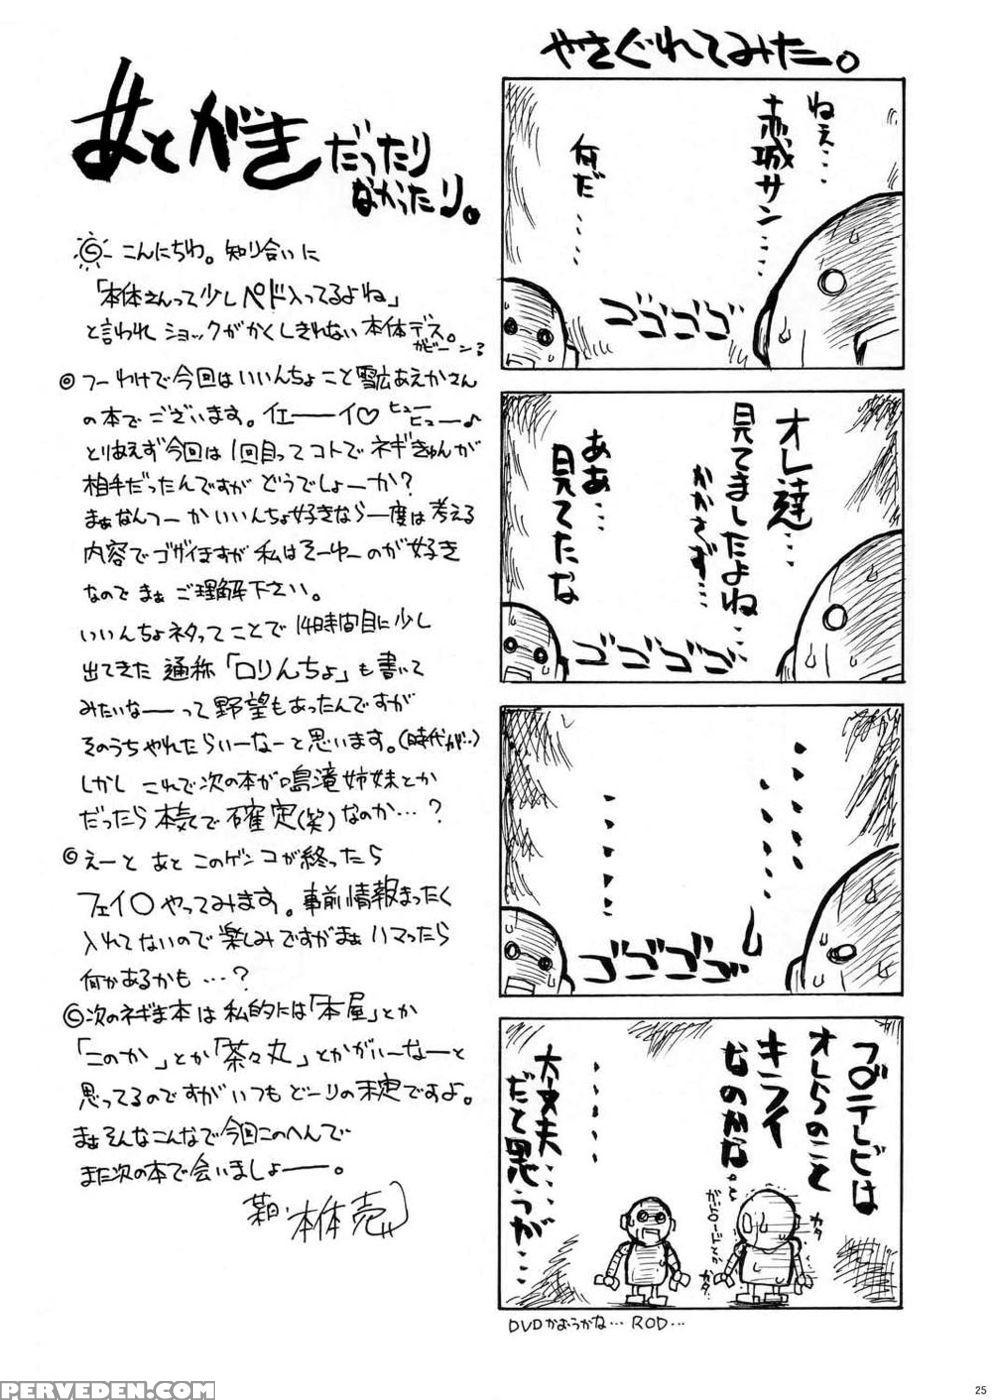 あとがき
だったり
なかったり。
こんにちわ。知り合いに
「本体さんって少しペド入ってるよね」
と言われショックがかくしきれない本体デス。
ガビーン
◎つーわけで今回はいいんちょこと雪広あえかさん
の本でございます。イエーーイ♡ヒューヒュー♪
とりあえず今回は1回目ってコトでネギきゅんが
相手だったんですがどうでしょーか?
まぁなんつーかいいんちょ好きなら一度は考える
内容でゴザイますが私はそーゆーのが好き
なのでまぁご理解下さい。
いいんちょネタってことで14時間目に少し
出てきた通称「ロリんちょ」も書いて
みたいなーーって野望もあったんですが
そのうちやれたらいーなーと思います。(時代が…)
しかしこれで次の本が鳴滝姉妹とか
だったら本気で確定(笑)なのか…?
◎えーとあとこのゲンコが終ったら
フェイ○やってみます。事前情報まったく
入れてないので楽しみですがまぁハマったら
何かあるかも…?
◎次のネギま本は私的には「本屋」とか
「このか」とか「茶々丸」とかがいーなーと
思ってるのですがいつもどーりの未定ですよ。
まぁそんなこんなで今回このへんで
また次の本で会いましょーー。
本体売
やさぐれてみたー。
ねぇ…
赤城サン…
何だ……
ゴゴゴゴゴ
オレ達…
見てましたよね…
かかさず……
ああ…
見てたな
ゴゴゴゴゴ
ゴゴゴゴゴ
フ○テレビは
オレらのこと
キライ
なのかな。
ガ○ードとか
カタ
カタ…
……
大丈夫…
だと思うが…
DVDかおうかな… ROD…
PERVEDEN.COM
25